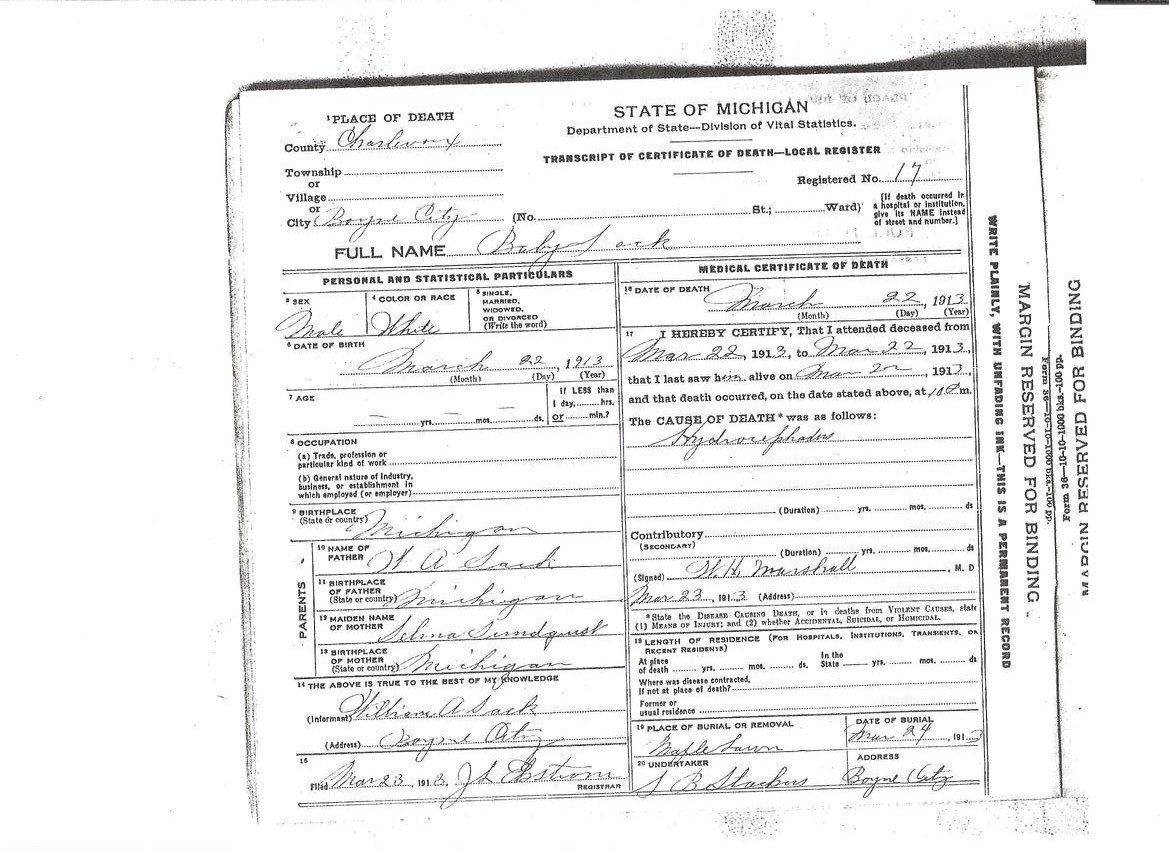 STATE OF MICHIGAN
Department of State—Division of Vital Statistics.
TRANSCRIPT OF CERTIFICATE OF DEATH—LOCAL REGISTER
Registered No. 17
[If death occurred in a hospital or institution, give its NAME instead of street and number.]
1 PLACE OF DEATH
County Charlevoix
Township
or
Village
or
City Boyne City (No. St.; Ward)
FULL NAME Baby Sack
PERSONAL AND STATISTICAL PARTICULARS
3 SEX Male
4 COLOR OR RACE White
5 SINGLE, MARRIED, WIDOWED, OR DIVORCED (Write the word)
6 DATE OF BIRTH
March 22, 1913
(Month) (Day) (Year)
7 AGE
yrs. mos. ds.
If LESS than
1 day, hrs.
or min.?
8 OCCUPATION
(a) Trade, profession or
particular kind of work
(b) General nature of industry,
business, or establishment in
which employed (or employer)
9 BIRTHPLACE
(State or country) Michigan
PARENTS
10 NAME OF
FATHER W A Sack
11 BIRTHPLACE
OF FATHER
(State or country) Michigan
12 MAIDEN NAME
OF MOTHER Selma Sundquist
13 BIRTHPLACE
OF MOTHER
(State or country) Michigan
14 THE ABOVE IS TRUE TO THE BEST OF MY KNOWLEDGE
(Informant) William A Sack
(Address) Boyne City
15
Filed Mar 23, 1913.
REGISTRAR
MEDICAL CERTIFICATE OF DEATH
16 DATE OF DEATH
March 22, 1913
(Month) (Day) (Year)
17 I HEREBY CERTIFY, That I attended deceased from
Mar 22, 1913, to Mar 22, 1913,
that I last saw him alive on Mar 22, 1913,
and that death occurred, on the date stated above, at m.
The CAUSE OF DEATH* was as follows:
Hydrocephalus
(Duration) yrs. mos. ds
Contributory
(SECONDARY)
(Duration) yrs. mos. ds
(Signed) W.H. Marshall, M. D
Mar 23, 1913 (Address)
*State the DISEASE CAUSING DEATH, or in deaths from VIOLENT CAUSES, state
(1) MEANS OF INJURY; and (2) whether ACCIDENTAL, SUICIDAL, or HOMICIDAL.
18 LENGTH OF RESIDENCE (FOR HOSPITALS, INSTITUTIONS, TRANSIENTS, OR
RECENT RESIDENTS)
At place
of death yrs. mos. ds.
In the
State yrs. mos. ds
Where was disease contracted,
if not at place of death?
Former or
usual residence
19 PLACE OF BURIAL OR REMOVAL
Maple Lawn
DATE OF BURIAL
Mar 24, 1913
20 UNDERTAKER
S B Stackus
ADDRESS
Boyne City
WRITE PLAINLY, WITH UNFADING INK—THIS IS A PERMANENT RECORD
MARGIN RESERVED FOR BINDING
Form 36—10-10-1000 bks.-100 pp.
Form 36—10-10-1000 bks.-100 pp.
MARGIN RESERVED FOR BINDING